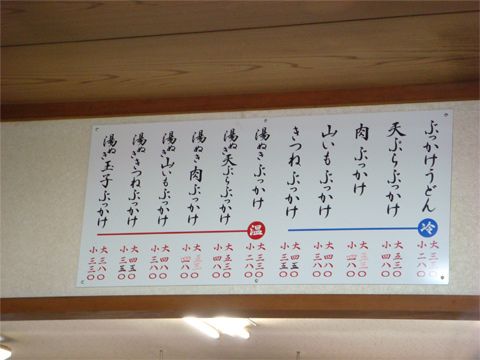 ぶっかけうどん
天ぷらぶっかけ
肉ぶっかけ
山いもぶっかけ
きつねぶっかけ
湯ぬきぶっかけ
湯ぬき天ぷらぶっかけ
湯ぬき肉ぶっかけ
湯ぬき山いもぶっかけ
湯ぬききつねぶっかけ
湯ぬき玉子ぶっかけ
冷
大三三〇
小二八〇
大五三〇
小四八〇
小四八〇
大四三〇
小三八〇
大四五〇
小三五〇
温
大三三〇
小二八〇
大五三〇
小四八〇
小四八〇
大四八〇
小三八〇
大四五〇
小三五〇
大三八〇
小三三〇